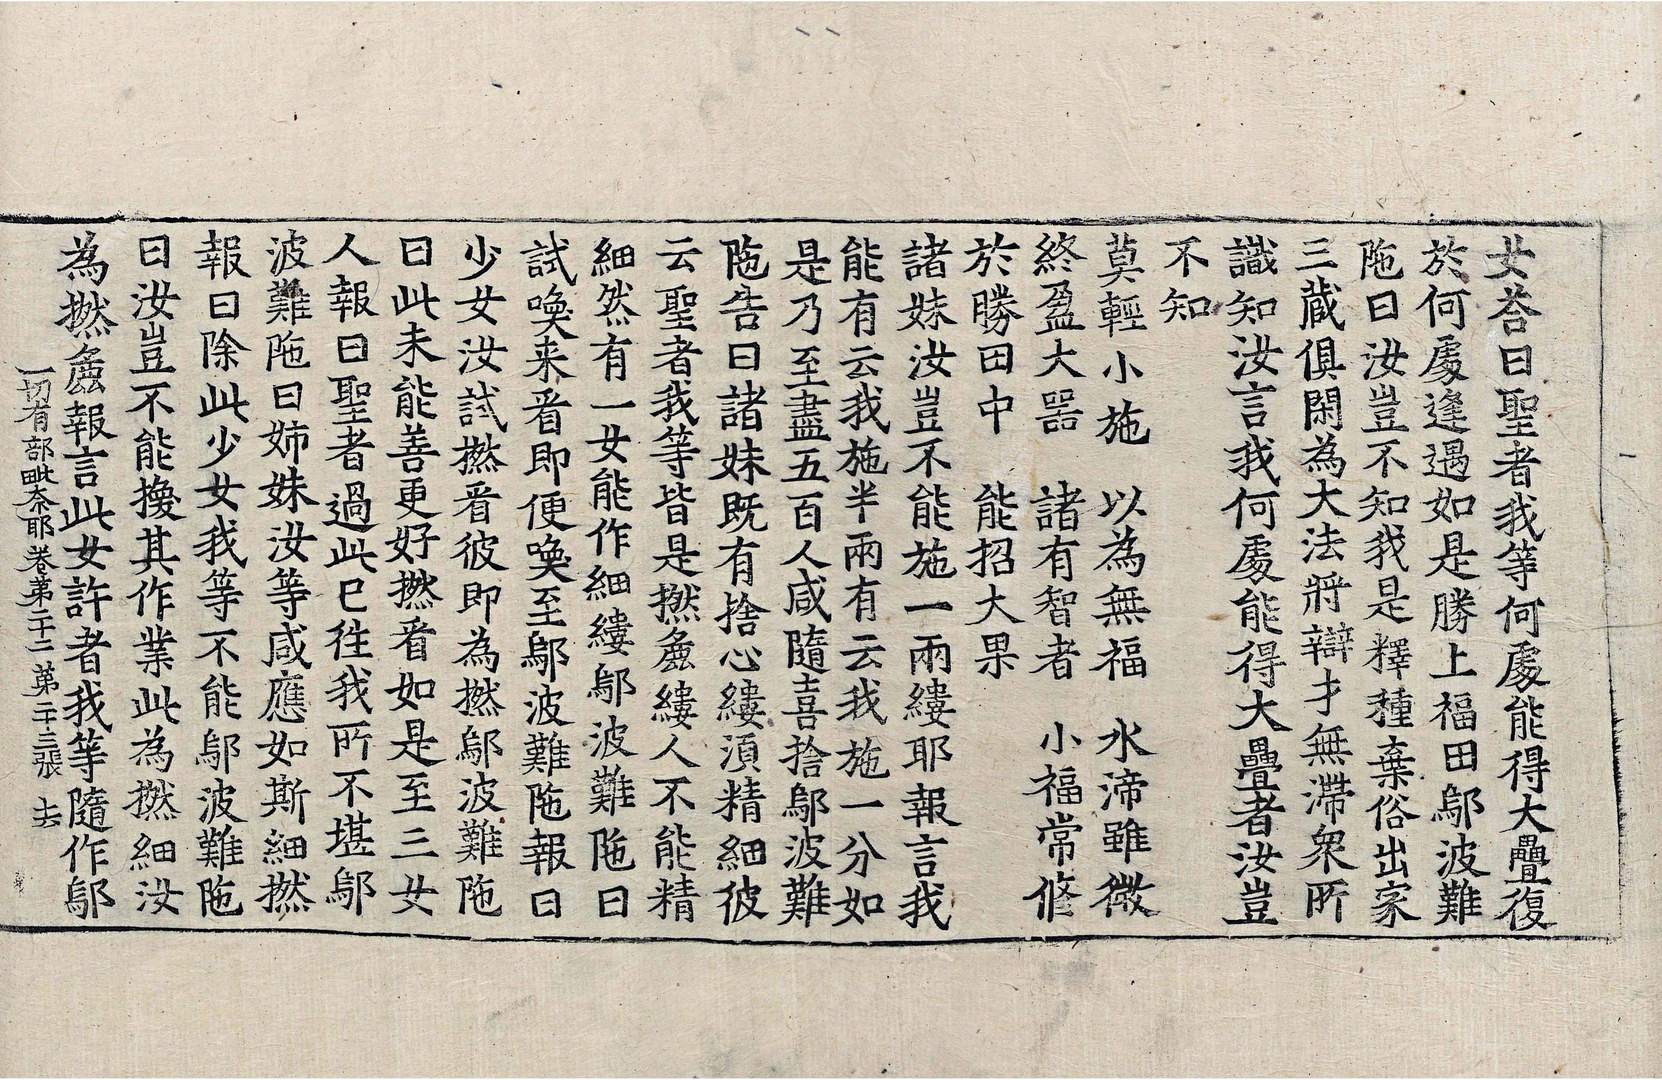 女荅曰聖者我等何處能得大疊復
於何處逢遇如是勝上福田鄔波難
陁曰汝豈不知我是釋種棄俗出家
三藏俱閑為大法將辯才無滯衆所
識知汝言我何處能得大疊者汝豈
不知
莫輕小施　以為無福　水渧雖微
終盈大器　諸有智者　小福常修
於勝田中　能招大果
諸妹汝豈不能施一兩縷耶報言我
能有云我施半兩有云我施一分如
是乃至盡五百人咸隨喜捨鄔波難
陁告曰諸妹既有捨心縷湏精細彼
云聖者我等皆是撚麁縷人不能精
細然有一女能作細縷鄔波難陁曰
試喚来看即便喚至鄔波難陁報曰
少女汝試撚看彼即為撚鄔波難陁
曰此未能善更好撚看如是至三女
人報曰聖者過此已徃我所不堪鄔
波難陁曰姉妹汝等咸應如斯細撚
報曰除此少女我等不能鄔波難陁
曰汝豈不能換其作業此為撚細汝
為撚麁報言此女許者我等隨作鄔
一切有部毗奈耶卷第二十二　第二十三張　去